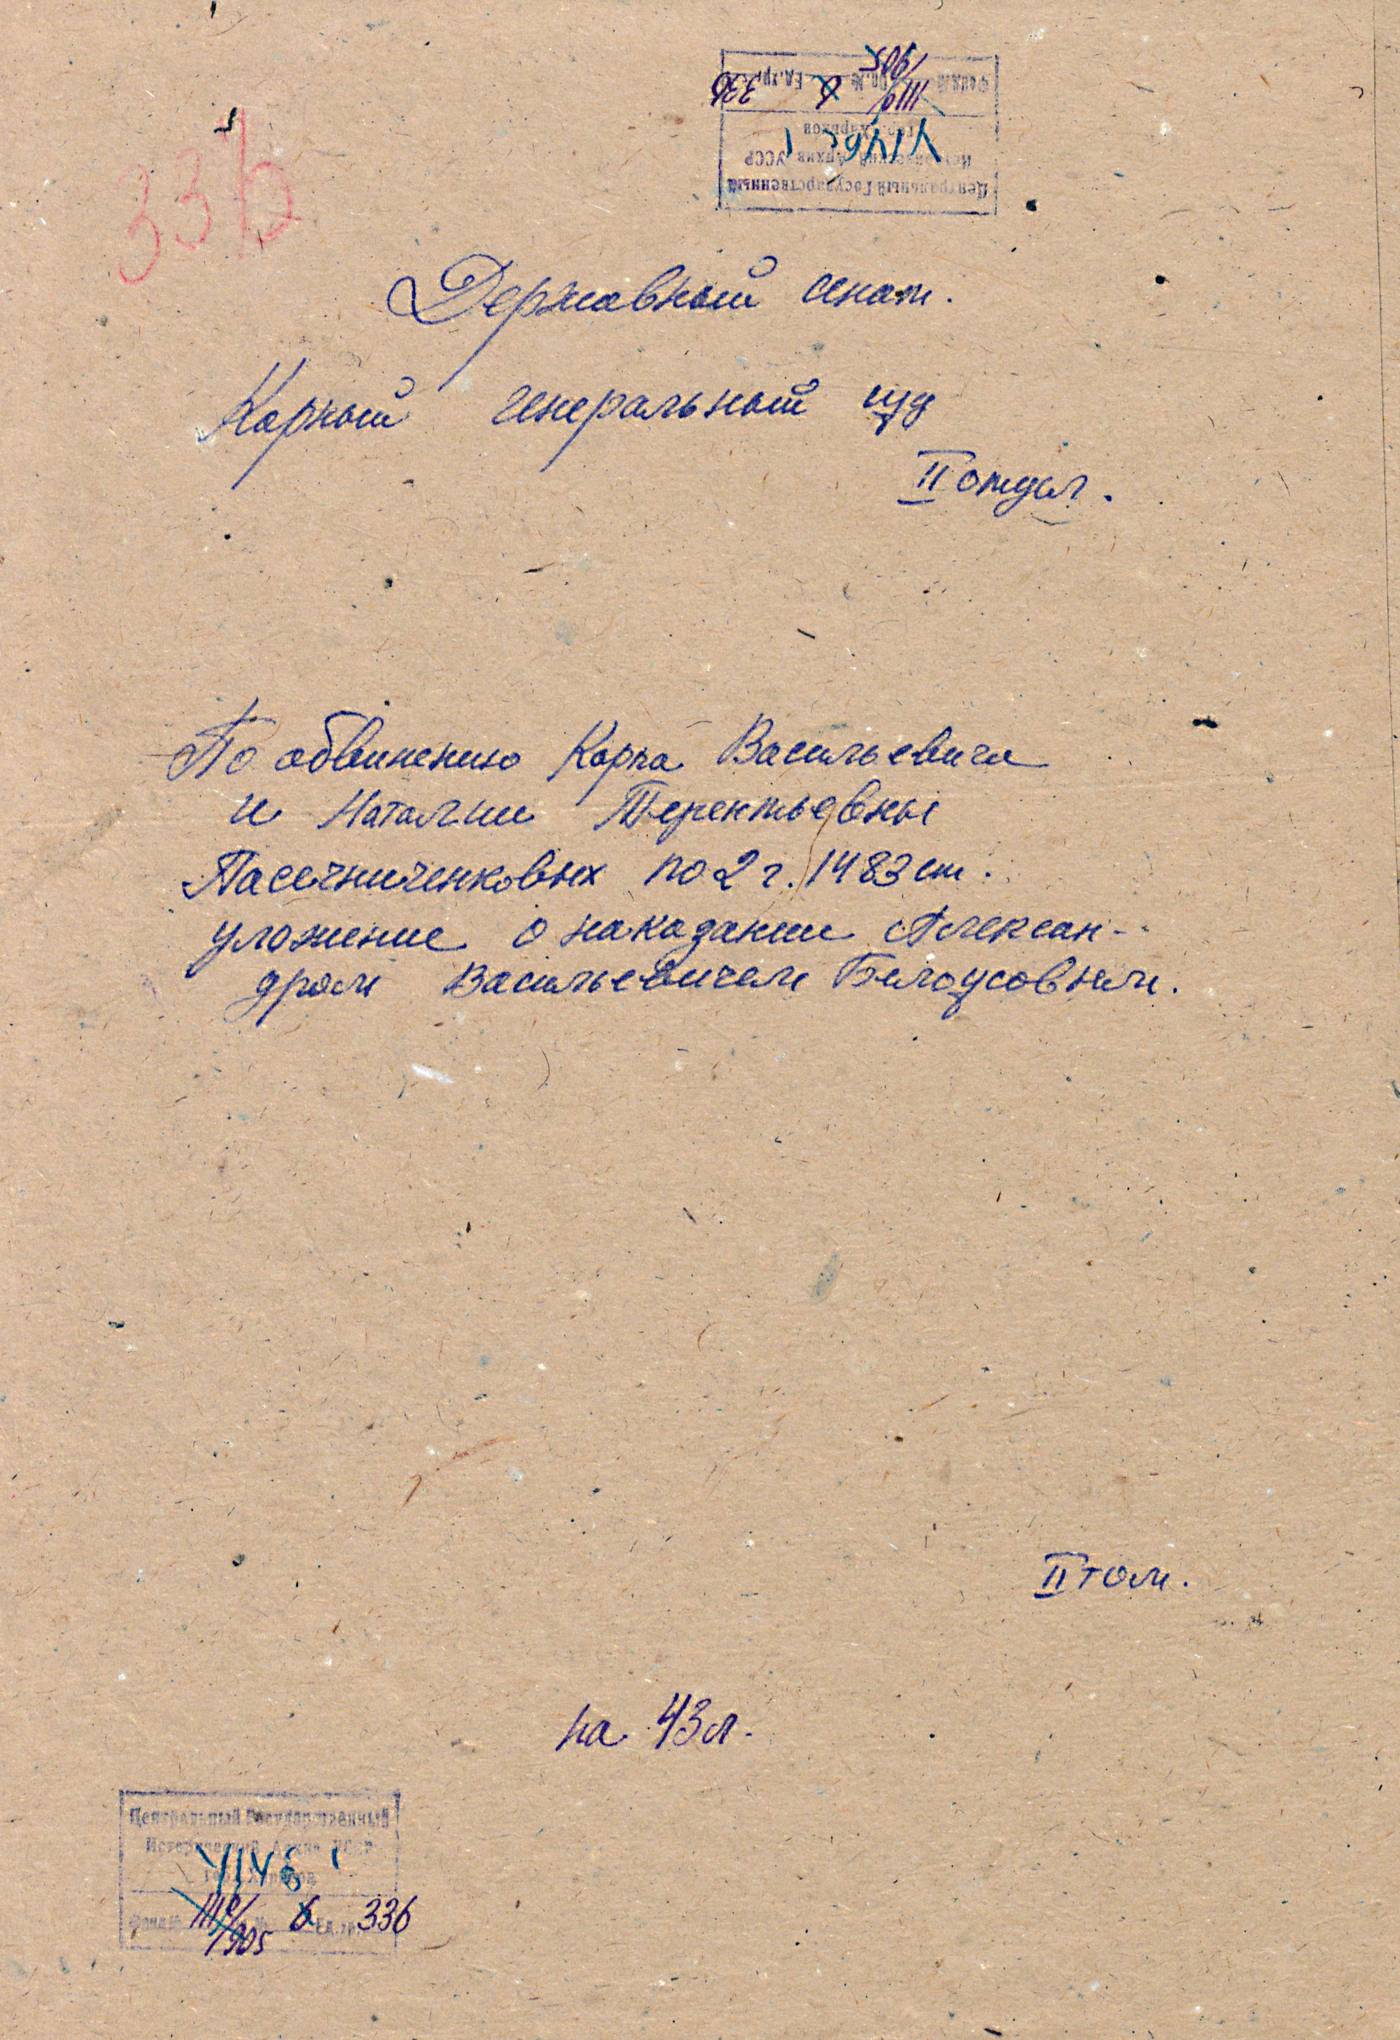 336
Центральный Государственный
Исторический Архив УССР
гор. Харьков
Фонд № Оп. № Ед. хр.
1905 336
Державный сенат.
Карный генеральный суд
II отдел.
По обвинению Карпа Васильевича
и Наталии Терентьевны
Пасечниченковых по 2 г. 1483 ст.
уложение о наказании Алексан-
дром Васильевичем Белоусовым.
II том.
на 43 л.
Центральный Государственный
Исторический Архив УССР
гор. Харьков
Фонд № № 6 Ед. хр. 336
1905